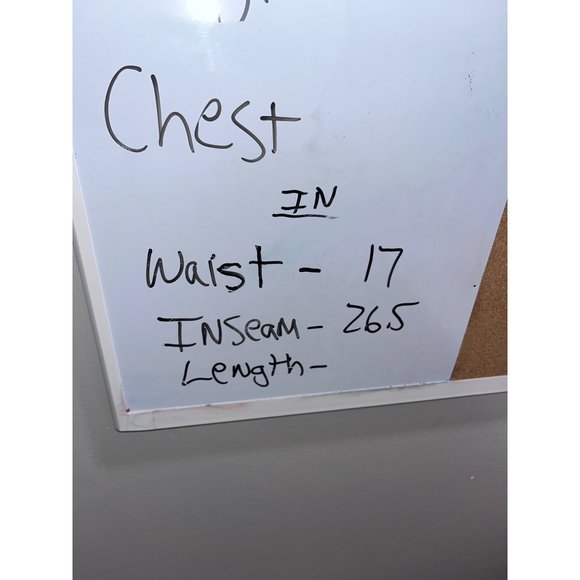 Chest
IN
Waist - 17
INSeam - 26.5
Length -